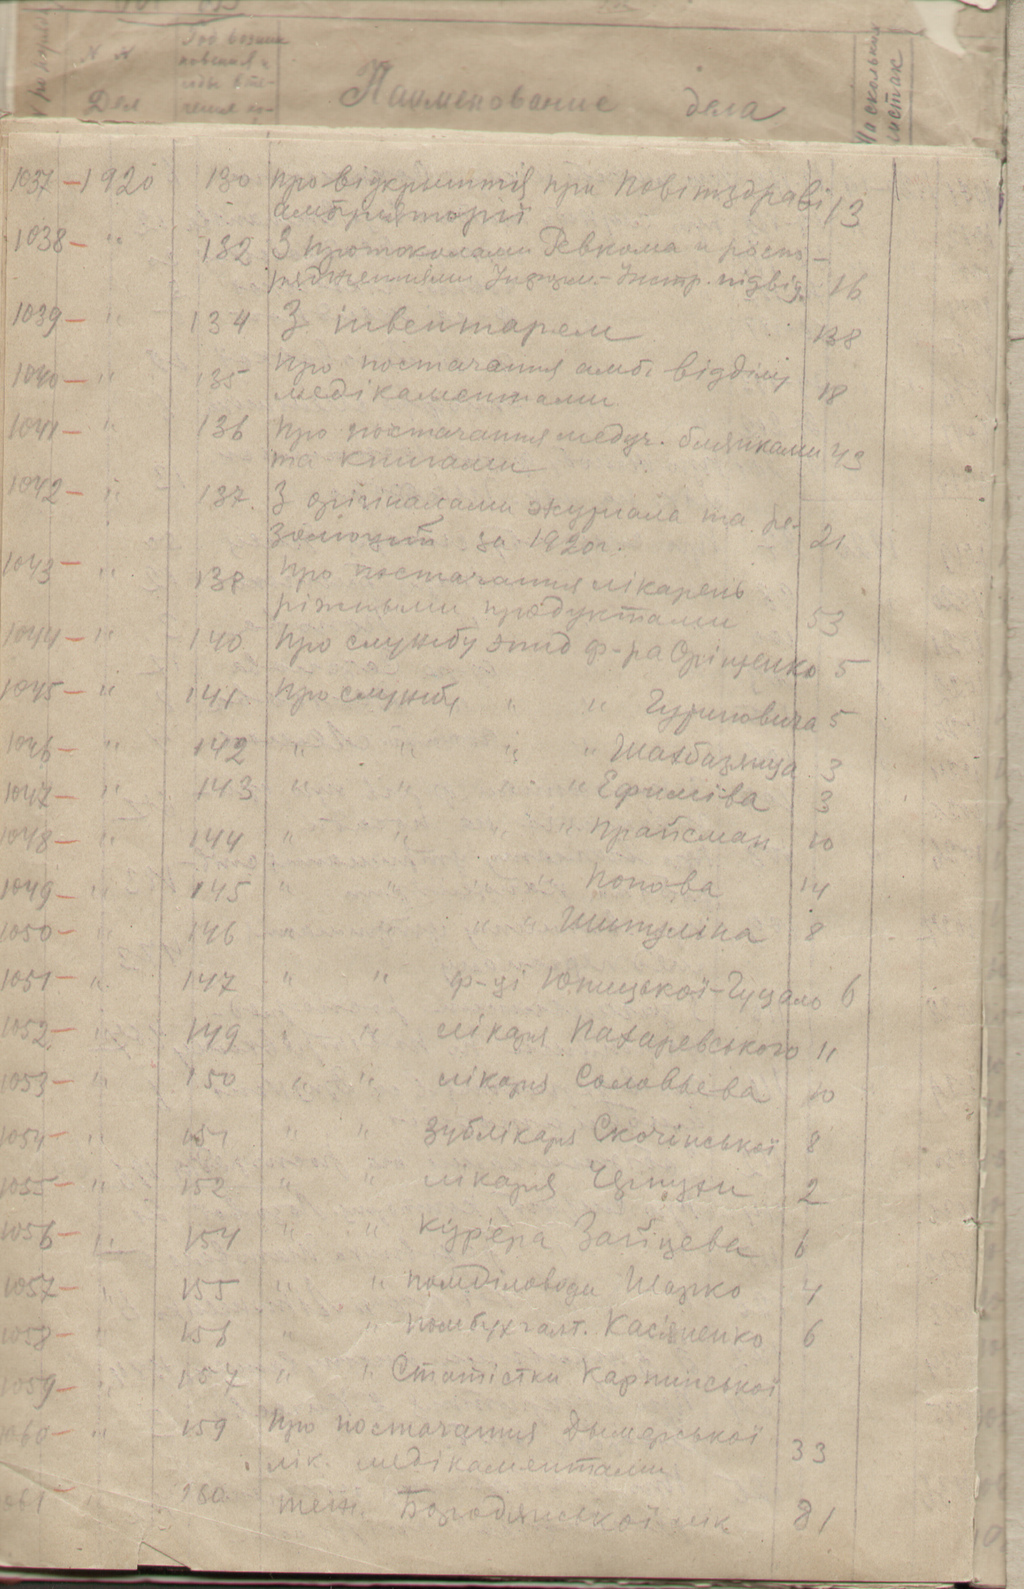 N N
Дел
Год возник
новения и
Наименование дела
На скольких
листах
1037 – 1920 130 Про відкриття при Повітздраві
амбуляторії 13
1038 – " 132 З протоколами Ревкома и роспо-
рядженнями Інформ.-Інстр. підвід. 16
1039 – " 134 З інвентарем 138
1040 – " 135 Про постачання амб. відділу
медікаментами 18
1041 – " 136 Про постачання медуч. бланками 43
та книгами
1042 – " 137. З орігіналами журнала та ре-
золюций за 1920 г. 21
1043 – " 138 Про постачання лікарень
ріжными продуктами 53
1044 – " 140 Про службу эпид ф-ра Оріщенко 5
1045 – " 141. Про службу " " Гуриновича 5
1046 – " 142 " " " " Шахбазянца 3
1047 – " 143 " " " Ефиміва 3
1048 – " 144 " " " " Прайсман 10
1049 – " 145 " " " " Попова 14
1050 – " 146 " " " " Шитуліна 8
1051 – " 147 " " ф-ці Юницької-Гуцало 6
1052 – " 149 " " лікаря Пахаревського 11
1053 – " 150 " " лікаря Соловьева 10
1054 – " 151 " " Зублікаря Скочінської 8
1055 – " 152 " " лікаря 2
1056 – " 154 " " Кур'ера Зайцева 6
1057 – " 155 " " помділовода Шарко 4
1058 – " 156 " " Помбухгалт. Касяненко 6
1059 – " 157 " " Статістки Карпинської
1060 – " 159 Про постачання Дымарської
лік. медікаментами 33
1061 – " 160 теж. Бородянської лік. 81